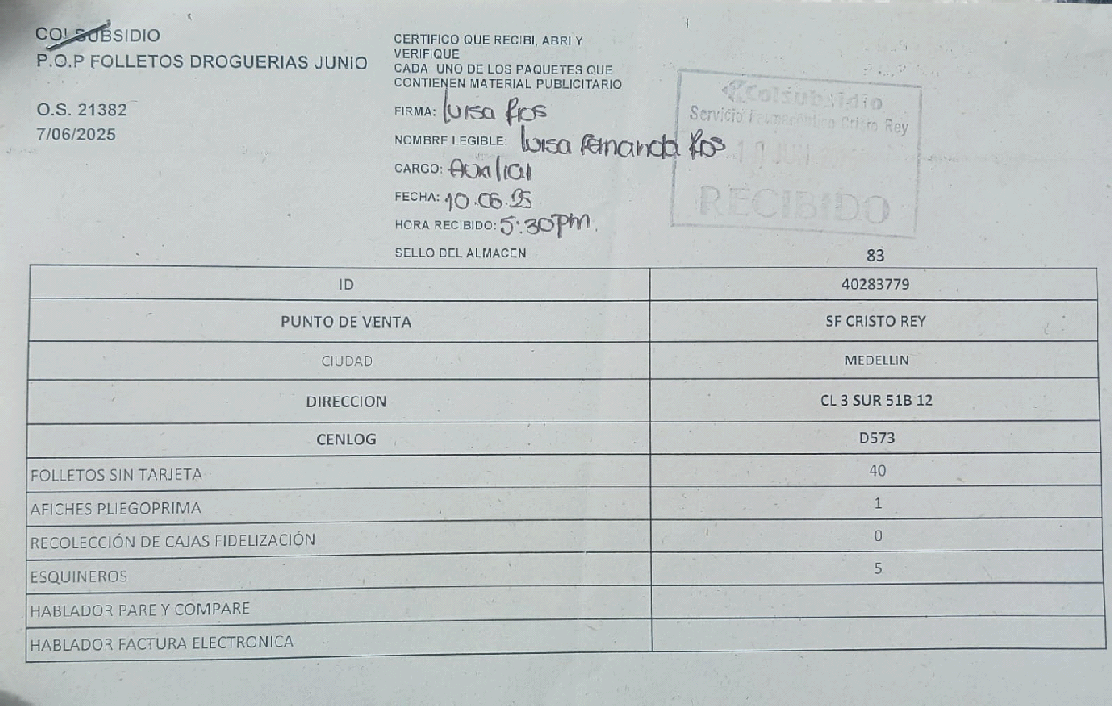 COLSUBSIDIO
P.O.P FOLLETOS DROGUERIAS JUNIO
O.S. 21382
7/06/2025
CERTIFICO QUE RECIBI, ABRI Y
VERIFIQUE
CADA UNO DE LOS PAQUETES QUE
CONTIENEN MATERIAL PUBLICITARIO
FIRMA: Luisa Rios
NOMBRE LEGIBLE: Luisa Fernanda Rios
CARGO: Auxiliar
FECHA: 10.06.25
HORA RECIBIDO: 5:30pm.
SELLO DEL ALMACEN
Colsubsidio
Servicio Farmacéutico Cristo Rey
10 JUN
RECIBIDO
83
ID 40283779
PUNTO DE VENTA SF CRISTO REY
CIUDAD MEDELLIN
DIRECCION CL 3 SUR 51B 12
CENLOG D573
FOLLETOS SIN TARJETA 40
AFICHES PLIEGOPRIMA 1
RECOLECCIÓN DE CAJAS FIDELIZACIÓN 0
ESQUINEROS 5
HABLADOR PARE Y COMPARE
HABLADOR FACTURA ELECTRONICA